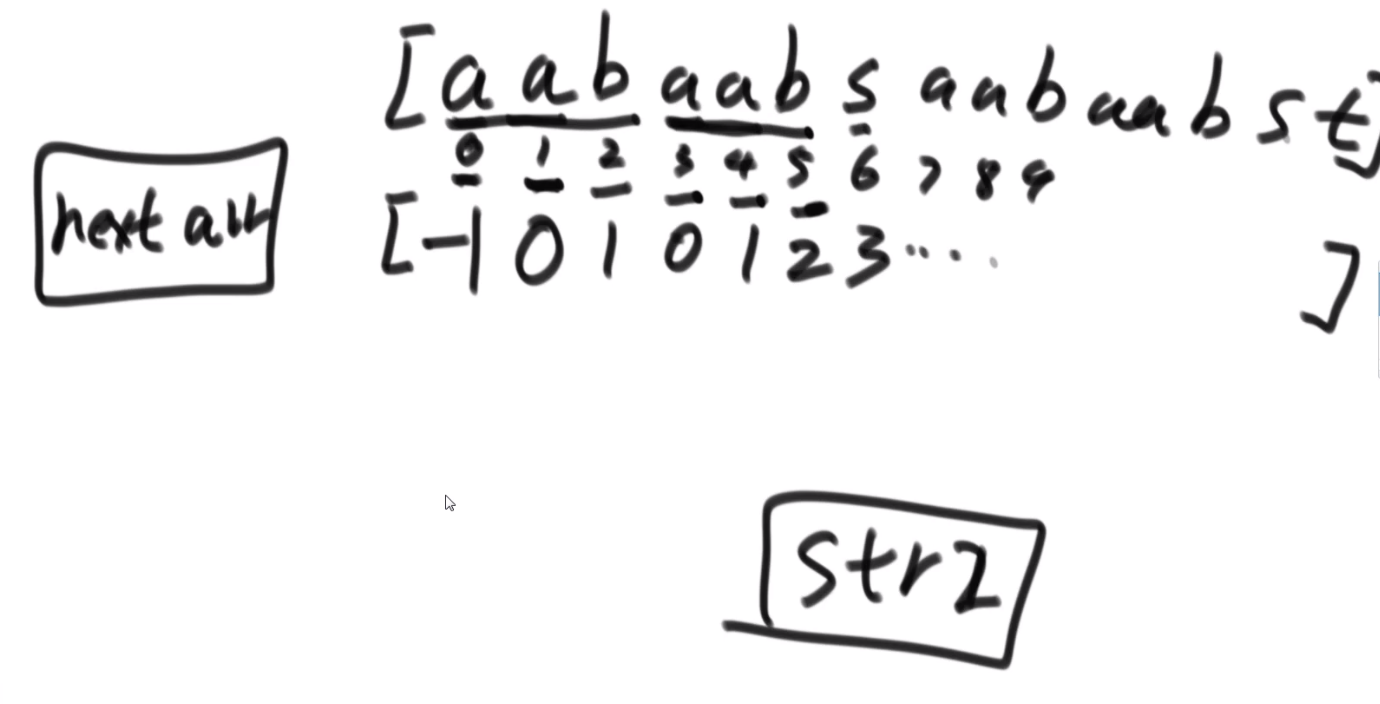 [a a b a a b s a a b a a b s t]
0 1 2 3 4 5 6 7 8 9
next arr
[-1 0 1 0 1 2 3 ···· ]
str2